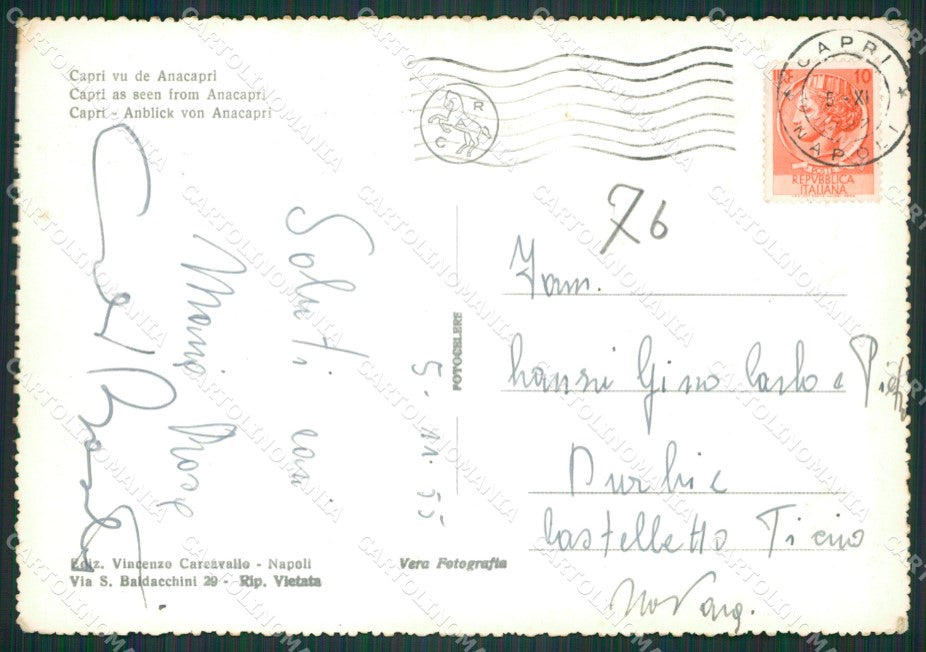 Capri vu de Anacapri
Capri as seen from Anacapri
Capri - Anblick von Anacapri
R
A
C
CAPRI
5 - XI
NAPOLI
10
POSTE
REPVBBLICA
ITALIANA
76
Saluti cari
Maria Rosa
5.11.55
FOTOCELERE
Fam.
Gino Carlo e
Castelletto Ticino
Novara.
Ediz. Vincenzo Carcavallo - Napoli
Via S. Baldacchini 29 - Rip. Vietata
Vera Fotografia
CARTOLINOMANIA